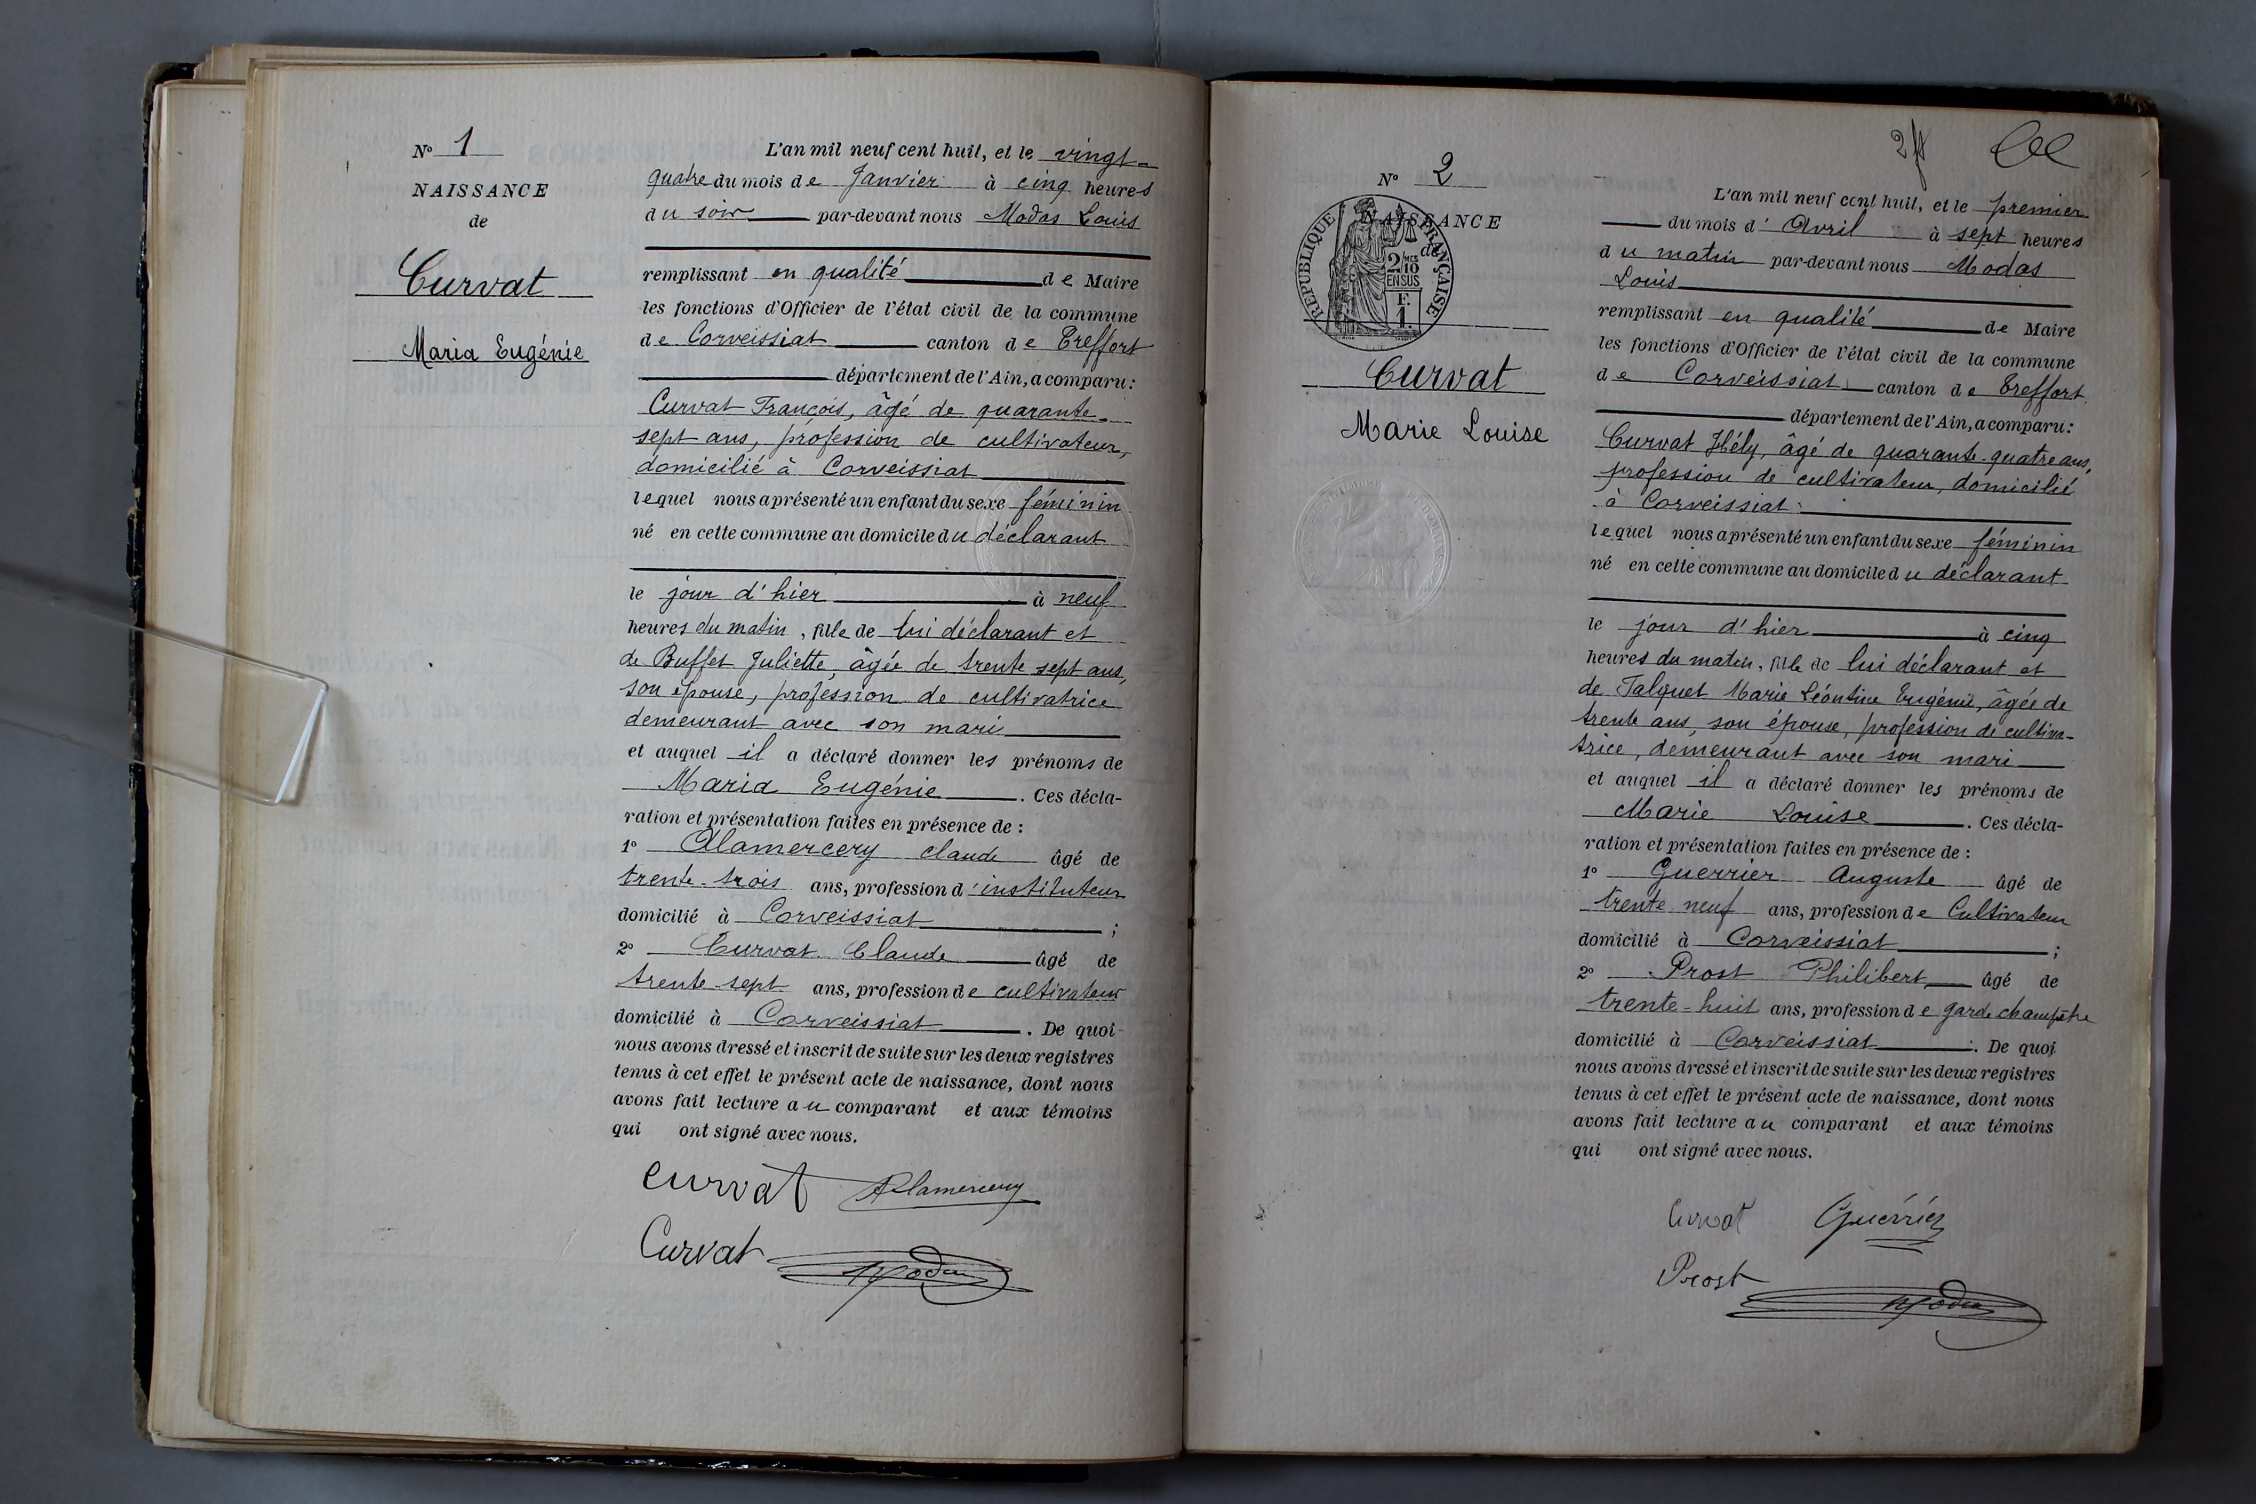 N° 1
NAISSANCE
de
Curvat
Maria Eugénie
L'an mil neuf cent huit, et le vingt-
quatre du mois de Janvier à cinq heures
du soir par-devant nous Modas Louis
remplissant en qualité de Maire
les fonctions d'Officier de l'état civil de la commune
de Corveissiat canton de Treffort
département de l'Ain, a comparu :
Curvat François, âgé de quarante-
sept ans, profession de cultivateur,
domicilié à Corveissiat
lequel nous a présenté un enfant du sexe féminin
né en cette commune au domicile du déclarant
le jour d'hier à neuf
heures du matin, fille de lui déclarant et
de Buffet Juliette, âgée de trente sept ans,
son épouse, profession de cultivatrice
demeurant avec son mari
et auquel il a déclaré donner les prénoms de
Maria Eugénie. Ces décla-
ration et présentation faites en présence de :
1° Alamercery Claude âgé de
trente-trois ans, profession d'instituteur
domicilié à Corveissiat ;
2° Curvat Claude âgé de
trente-sept ans, profession de cultivateur
domicilié à Corveissiat. De quoi
nous avons dressé et inscrit de suite sur les deux registres
tenus à cet effet le présent acte de naissance, dont nous
avons fait lecture au comparant et aux témoins
qui ont signé avec nous.
Curvat Alamercery
Curvat Modas
2 f
N° 2
NAISSANCE
de
RÉPUBLIQUE FRANÇAISE
2/10
EN SUS
F.
1.
Curvat
Marie Louise
L'an mil neuf cent huit, et le premier
du mois d'Avril à sept heures
du matin par-devant nous Modas
Louis
remplissant en qualité de Maire
les fonctions d'Officier de l'état civil de la commune
de Corveissiat canton de Treffort
département de l'Ain, a comparu :
Curvat Hély, âgé de quarante-quatre ans,
profession de cultivateur, domicilié
à Corveissiat
lequel nous a présenté un enfant du sexe féminin
né en cette commune au domicile du déclarant
le jour d'hier à cinq
heures du matin, fille de lui déclarant et
de Jalquet Marie Léontine Eugénie, âgée de
trente ans, son épouse, profession de cultiva-
trice, demeurant avec son mari
et auquel il a déclaré donner les prénoms de
Marie Louise. Ces décla-
ration et présentation faites en présence de :
1° Guerrier Auguste âgé de
trente neuf ans, profession de Cultivateur
domicilié à Corveissiat ;
2° Prost Philibert âgé de
trente-huit ans, profession de garde champêtre
domicilié à Corveissiat. De quoi
nous avons dressé et inscrit de suite sur les deux registres
tenus à cet effet le présent acte de naissance, dont nous
avons fait lecture au comparant et aux témoins
qui ont signé avec nous.
Curvat Guerrier
Prost Modas